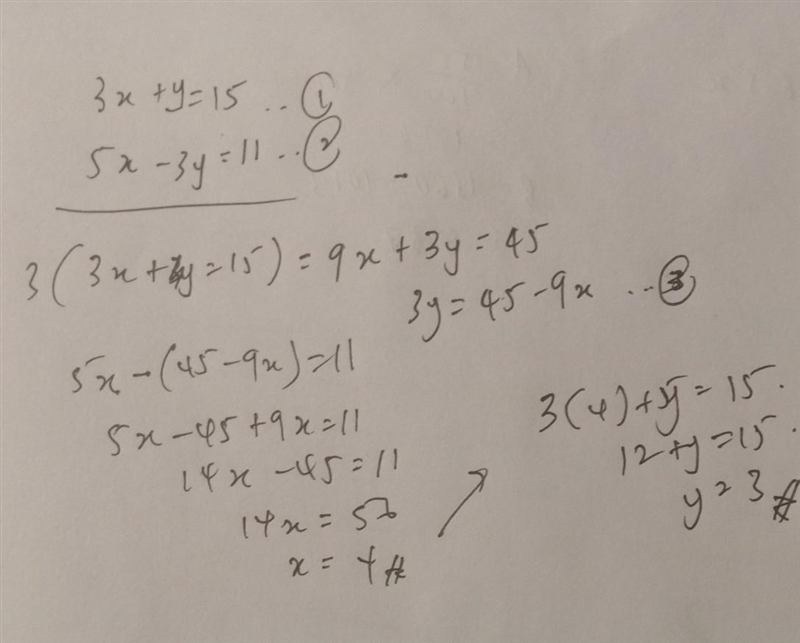 3x + y = 15 .. ①
5x - 3y = 11 .. ②
3(3x + y = 15) = 9x + 3y = 45
3y = 45 - 9x .. ③
5x - (45 - 9x) = 11
5x - 45 + 9x = 11
14x - 45 = 11
14x = 56
x = 4 #
3(4) + y = 15.
12 + y = 15.
y = 3 #